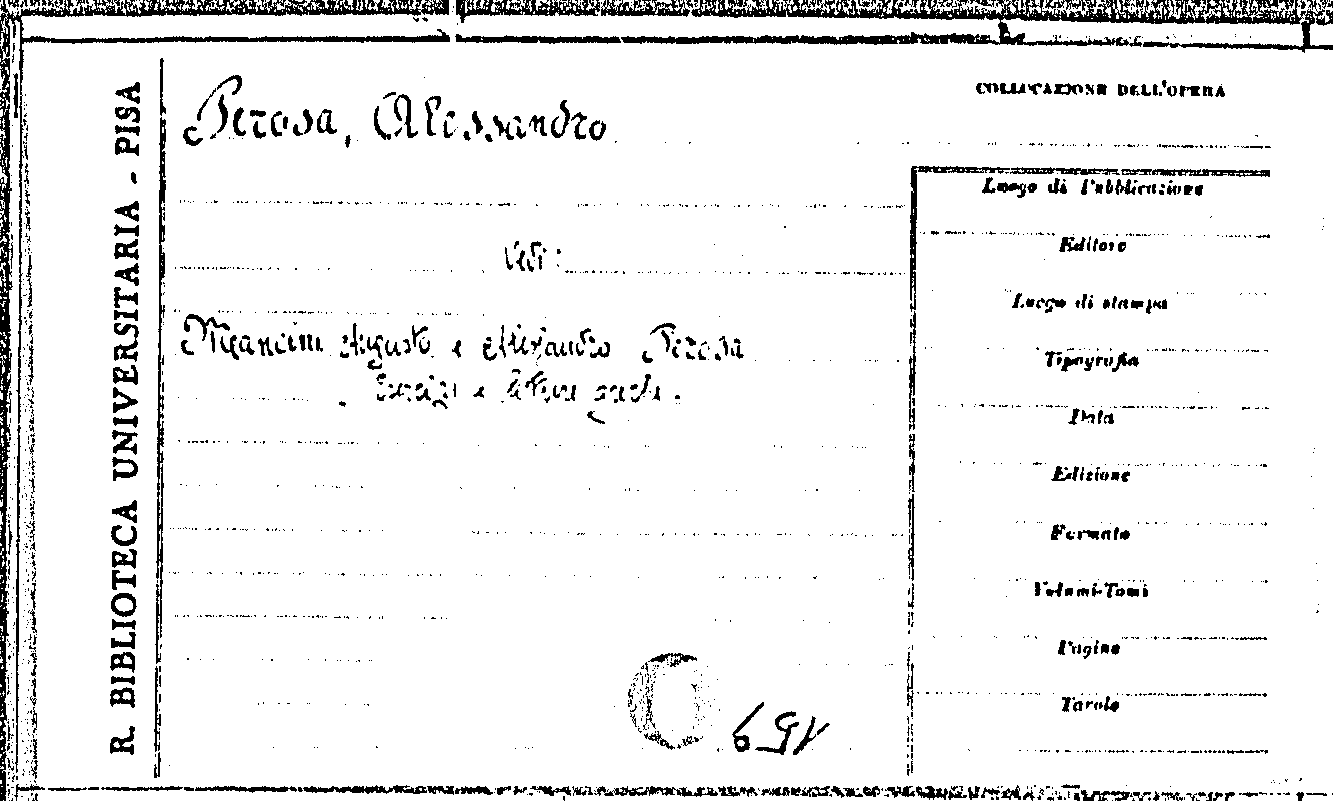 R. BIBLIOTECA UNIVERSITARIA - PISA
Perosa, Alessandro
Vedi:
Mancini Augusto e Alessandro Perosa
Esercizi e letture greche.
COLLOCAZIONE DELL'OPERA
Luogo di Pubblicazione
Editore
Luogo di stampa
Tipografia
Data
Edizione
Formato
Volumi-Tomi
Pagine
Tavole